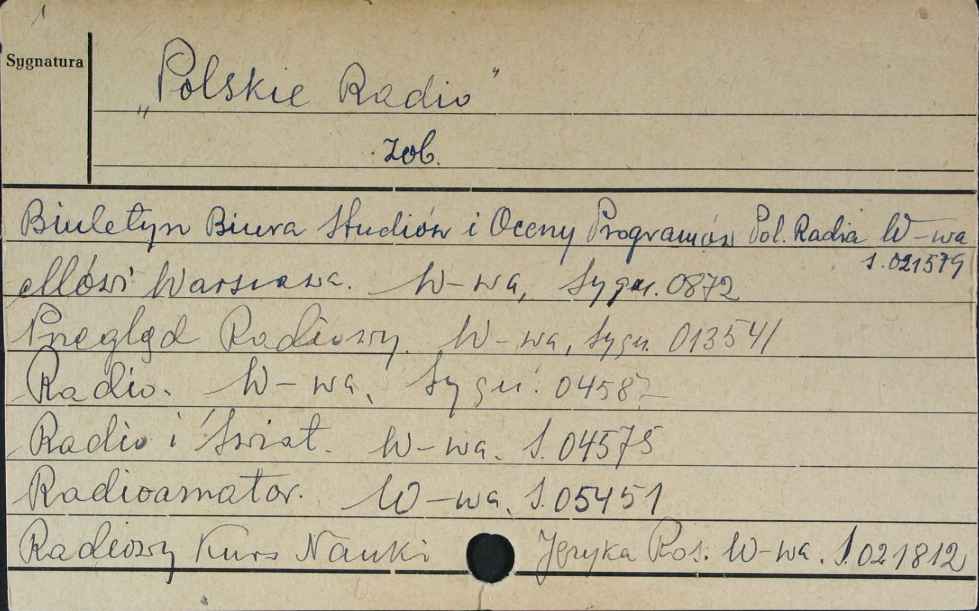 1
Sygnatura
„Polskie Radio”
zob.
Biuletyn Biura Studiów i Oceny Programów Pol. Radia W-wa
S. 021579
Mówi Warszawa. W-wa, Sygn. 0872
Przegląd Radiowy. W-wa, Sygn. 013541
Radio. W-wa, Sygn. 04582
Radio i Świat. W-wa. S. 04575
Radioamator. W-wa, S. 05451
Radiowy Kurs Nauki Języka Ros. W-wa. S. 021812